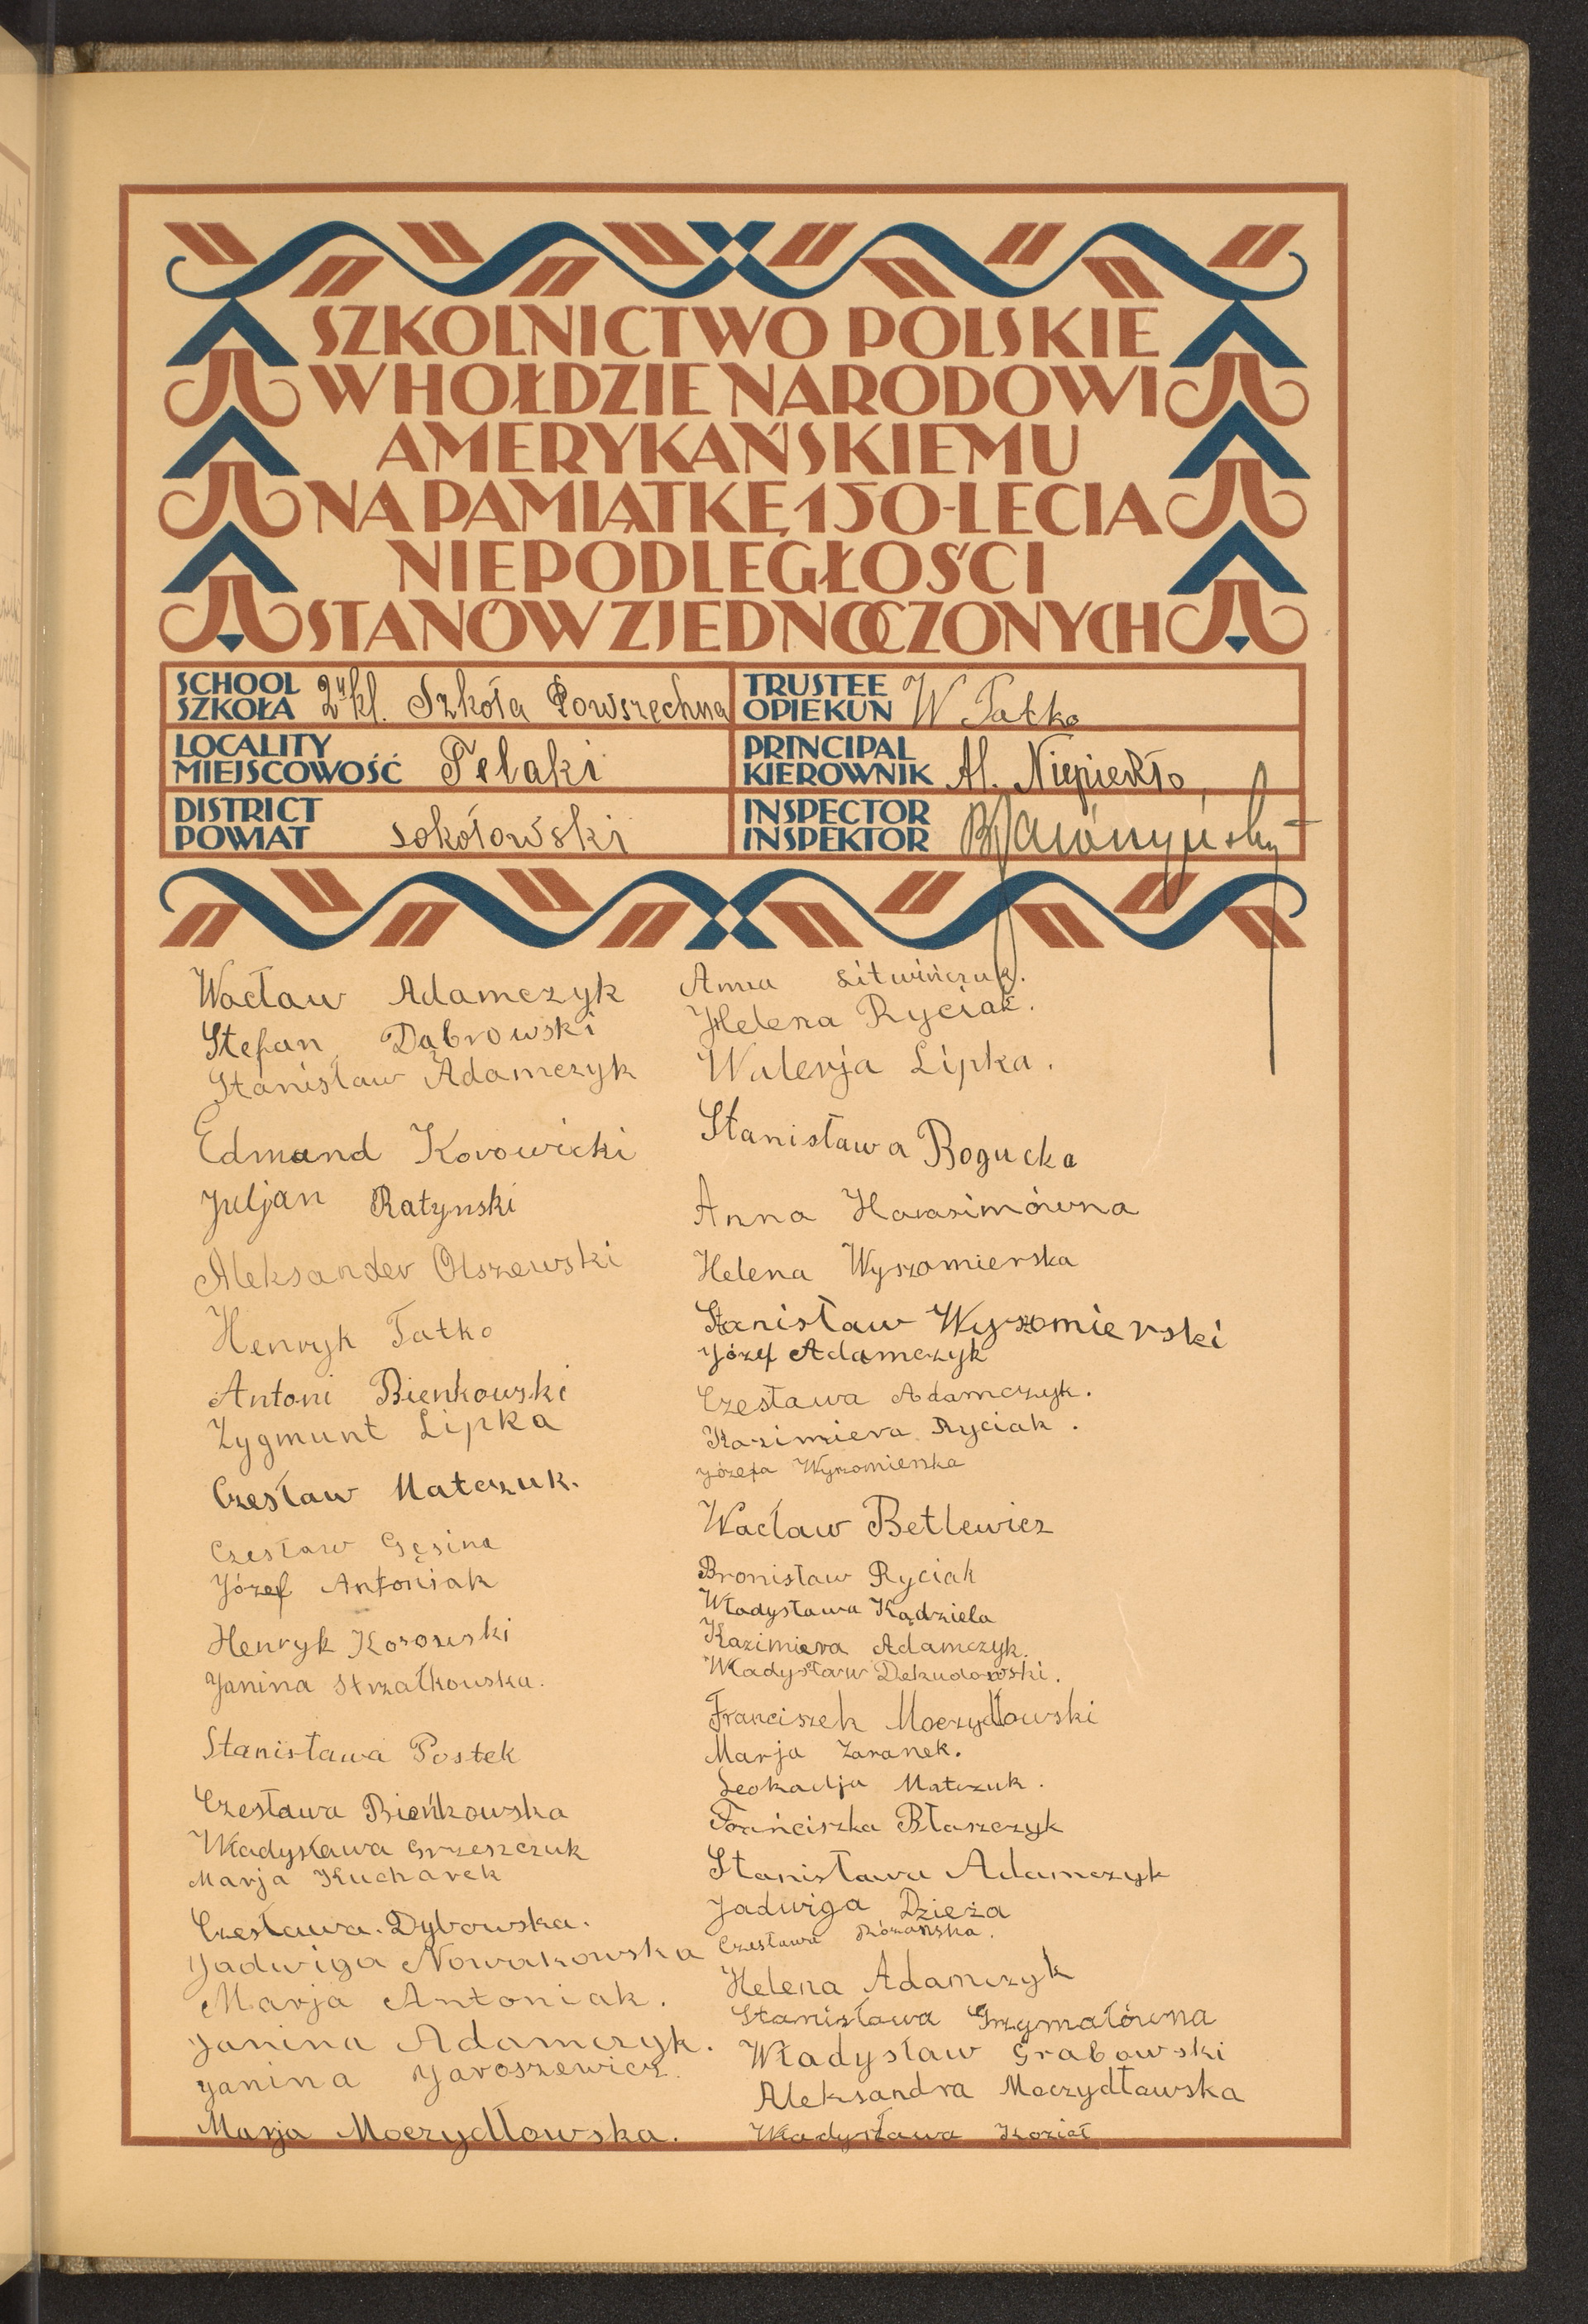 SZKOLNICTWO POLSKIE
W HOŁDZIE NARODOWI
AMERYKAŃSKIEMU
NA PAMIĄTKĘ 150-LECIA
NIEPODLEGŁOŚCI
STANÓW ZJEDNOCZONYCH
SCHOOL
SZKOŁA 2 kl. Szkoła Powszechna
LOCALITY
MIEJSCOWOŚĆ Pelaki
DISTRICT
POWIAT sokołowski
TRUSTEE
OPIEKUN W Tatko
PRINCIPAL
KIEROWNIK Al. Niepiekło
INSPECTOR
INSPEKTOR
Wacław Adamczyk
Stefan Dąbrowski
Stanisław Adamczyk
Edmund Korowicki
Juljan Ratynski
Aleksander Olszewski
Henryk Tatko
Antoni Bienkowski
Zygmunt Lipka
Czesław Matczuk.
Czesław Gęsina
Józef Antoniak
Henryk Kosowski
Janina Strzałkowska.
Stanisława Postek
Czesława Bieńkowska
Władysława Grzeszczuk
Marja Kucharek
Czesława. Dybowska.
Jadwiga Nowakowska
Marja Antoniak.
Janina Adamczyk.
Janina Jaroszewicz.
Marja Moczydłowska.
Anna Litwińczuk.
Helena Ryciak.
Walerja Lipka.
Stanisława Bogucka
Anna Harasimówna
Helena Wyszomierska
Stanisław Wyszomierski
Józef Adamczyk
Czesława Adamczyk.
Kazimiera Ryciak.
Józefa Wyszomierska
Wacław Betlewicz
Bronisław Ryciak
Władysława Kądziela
Kazimiera Adamczyk.
Władysław Dekudowski.
Franciszek Moczydłowski
Marja Zaranek.
Leokadja Matczuk.
Frańciszka Błaszczyk
Stanisława Adamczyk
Jadwiga Dzięża
Czesława Różańska.
Helena Adamczyk
Stanisława Grzymałówna
Władysław Grabowski
Aleksandra Moczydławska
Władysława Kozieł